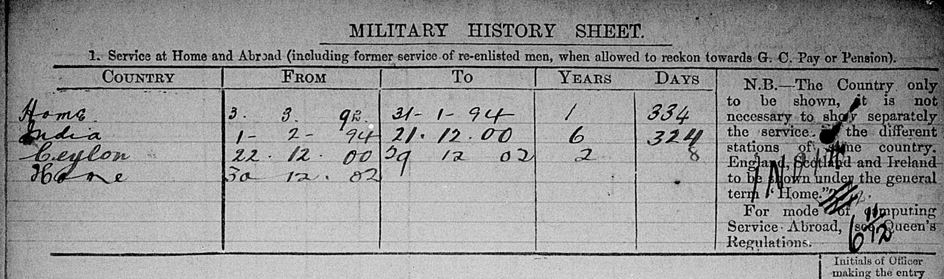 MILITARY HISTORY SHEET.
1. Service at Home and Abroad (including former service of re-enlisted men, when allowed to reckon towards G. C. Pay or Pension).
COUNTRY FROM TO YEARS DAYS
Home 3. 3. 92 31-1-94 1 334
India 1- 2- 94 21.12.00 6 324
Ceylon 22.12.00 29 12 02 2 8
Home 30 12.02
N.B.—The Country only
to be shown, it is not
necessary to show separately
the service the different
stations of same country.
England, Scotland and Ireland
to be shown under the general
term "Home."
For mode of computing
Service Abroad, (see Queen's
Regulations.
INDIA
6 11/12
Initials of Officer
making the entry